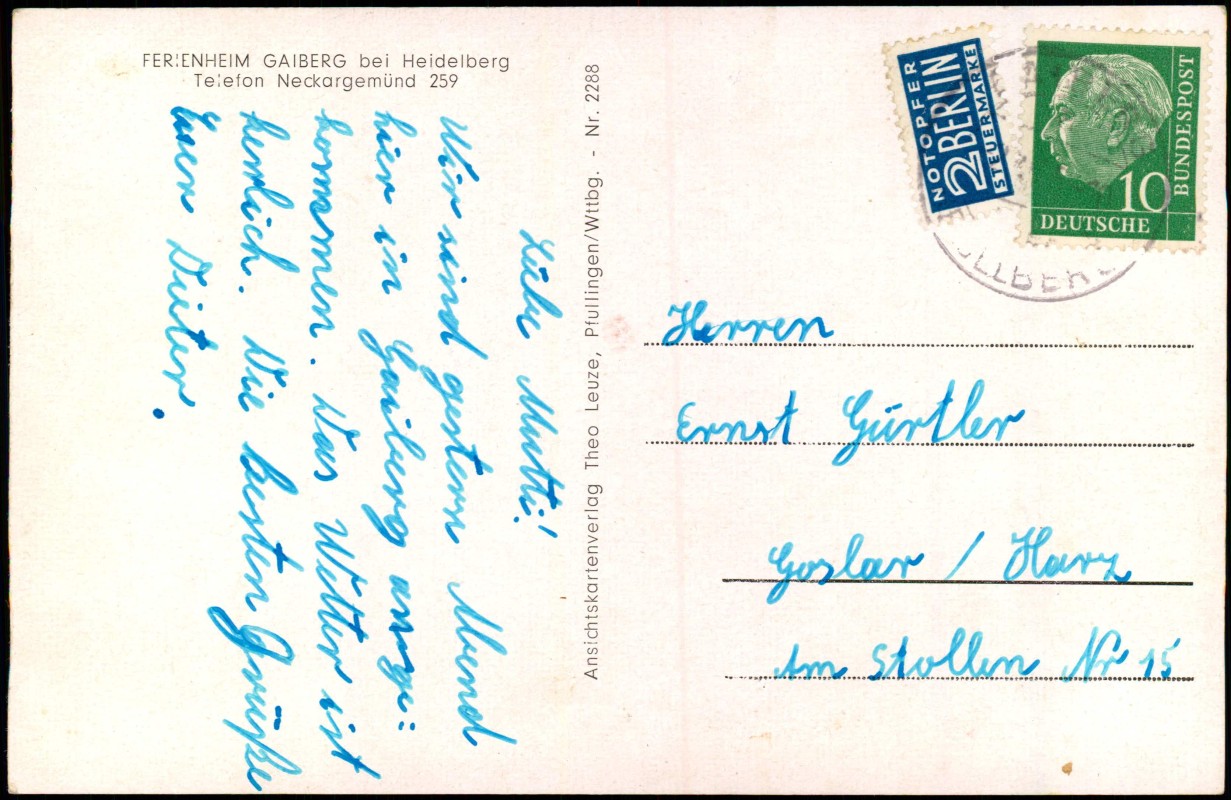 FERIENHEIM GAIBERG bei Heidelberg
Telefon Neckargemünd 259
Liebe Mutti!
Wir sind gestern Abend
hier in Gaiberg ange:
kommen. Das Wetter ist
herrlich. Die besten Grüße
Euer Dieter.
Ansichtskartenverlag Theo Leuze, Pfullingen/Wttbg. - Nr. 2288
NOTOPFER
2 BERLIN
STEUERMARKE
10
DEUTSCHE
BUNDESPOST
Herren
Ernst Gürtler
Goslar / Harz
Am Stollen Nr 15